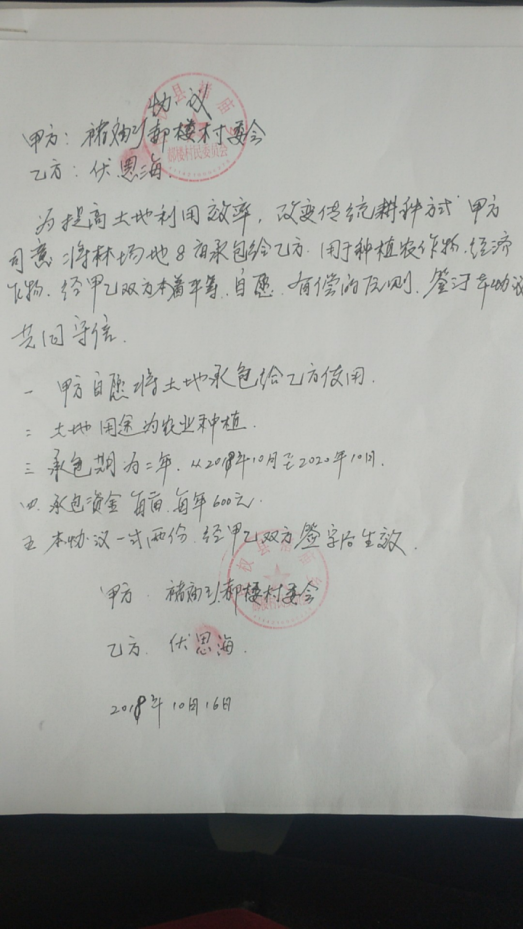 协议
甲方：褚庙乡郝楼村委会
乙方：伏思海
为提高土地利用效率，改变传统耕种方式 甲方
同意将林场地8亩承包给乙方.用于种植农作物.经济
作物.经甲乙双方本着平等.自愿.有偿的原则.签订本协议
共同守信.
一 甲方自愿将土地承包给乙方使用.
二 土地用途为农业种植.
三 承包期为二年.从2018年10月至2020年10月.
四.承包资金 每亩.每年600元.
五 本协议一式两份.经甲乙双方签字后生效.
甲方.褚庙乡郝楼村委会
乙方.伏思海.
2018年10月16日